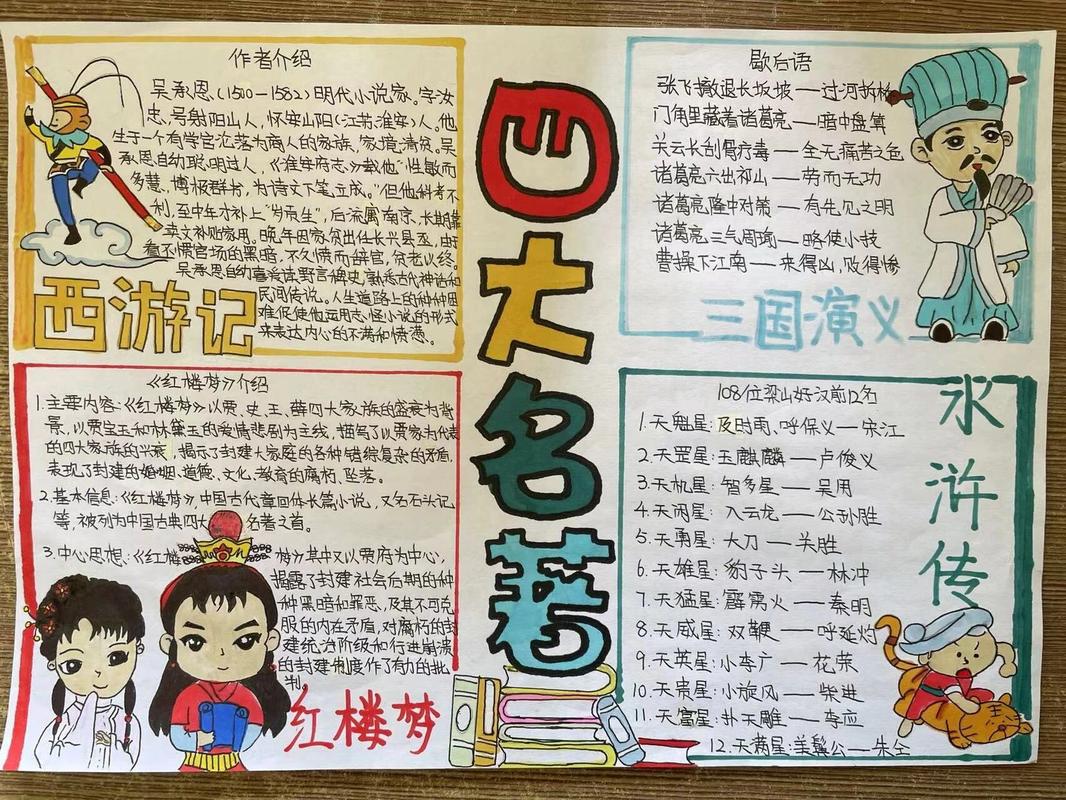 四大名著
作者介绍
吴承恩,(1500—1582)明代小说家。字汝
忠,号射阳山人,怀安山阳(江苏淮安)人。他
生于一个有学官沦落为商人的家族,家境清贫。吴
承恩自幼聪明过人,《淮安府志》载他"性敏而
多慧,博极群书,为诗文下笔立成。"但他科考不
利,至中年才补上"岁贡生",后流寓南京,长期靠
卖文补贴家用。晚年因家贫出任长兴县丞,由于
看不惯官场的黑暗,不久愤而辞官,贫老以终。
吴承恩自幼喜欢读野言稗史,熟悉古代神话和
民间传说。人生道路上的种种困
难促使他运用志怪小说的形式
来表达内心的不满和愤懑。
西游记
歇后语
张飞撤退长坂坡—过河拆桥
门角里藏着诸葛亮—暗中盘算
关云长刮骨疗毒—全无痛苦之色
诸葛亮六出祁山—劳而无功
诸葛亮隆中对策—有先见之明
诸葛亮三气周瑜—略使小技
曹操下江南—来得凶,败得惨
三国演义
《红楼梦》介绍
1.主要内容:《红楼梦》以贾、史、王、薛四大家族的盛衰为背
景,以贾宝玉和林黛玉的爱情悲剧为主线,描写了以贾家为代表
的四大家族的兴衰,揭示了封建大家庭的各种错综复杂的矛盾,
表现了封建的婚姻、道德、文化、教育的腐朽、坠落。
2.基本信息:《红楼梦》,中国古代章回体长篇小说,又名石头记
等,被列为中国古典四大名著之首。
3.中心思想:《红楼梦》其中又以贾府为中心,
揭露了封建社会后期的种
种黑暗和罪恶,及其不可克
服的内在矛盾,对腐朽的封
建统治阶级和行进崩溃
的封建制度作了有力的批
判。
红楼梦
108位梁山好汉前12名
1.天魁星:及时雨、呼保义—宋江
2.天罡星:玉麒麟—卢俊义
3.天机星:智多星—吴用
4.天闲星:入云龙—公孙胜
5.天勇星:大刀—关胜
6.天雄星:豹子头—林冲
7.天猛星:霹雳火—秦明
8.天威星:双鞭—呼延灼
9.天英星:小李广—花荣
10.天贵星:小旋风—柴进
11.天富星:扑天雕—李应
12.天满星:美髯公—朱仝
水浒传